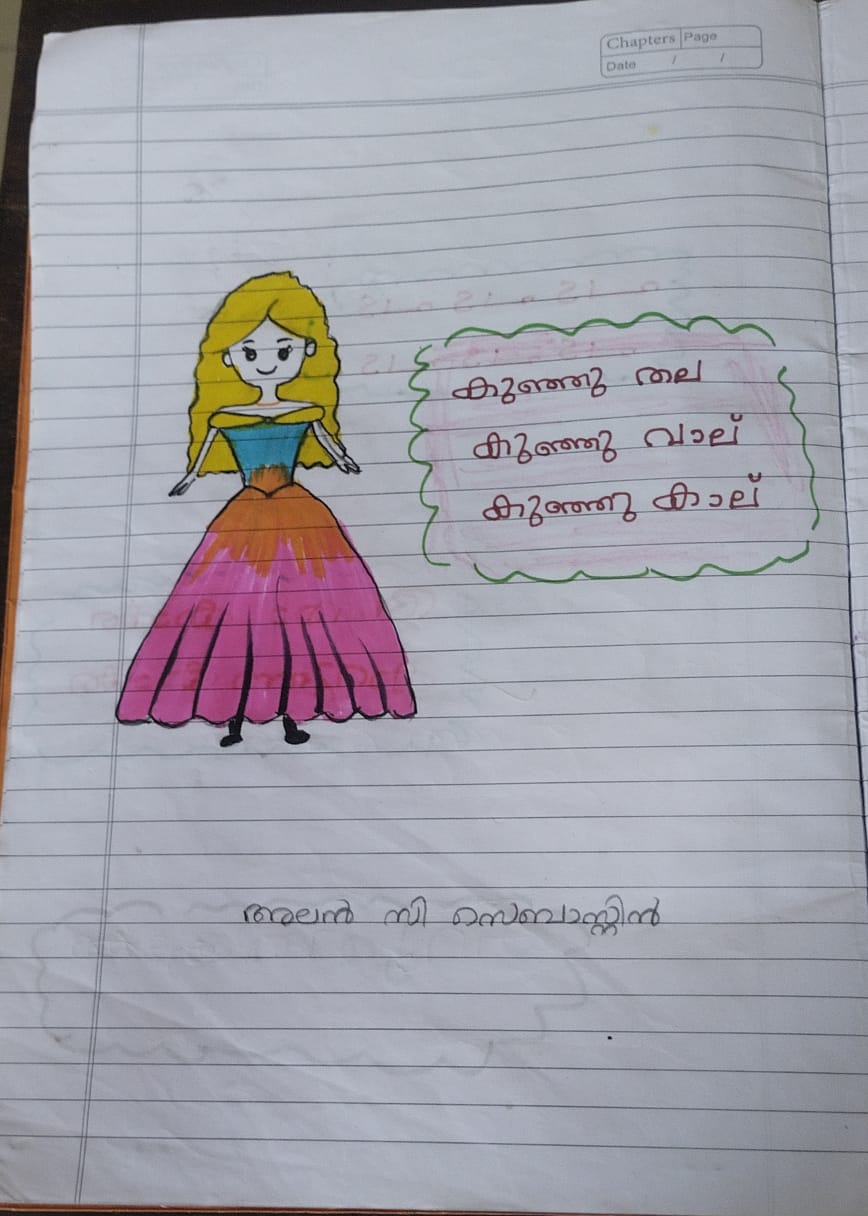 Chapters Page
Date / /
കുഞ്ഞു തല
കുഞ്ഞു വാല്
കുഞ്ഞു കാല്
അലൻ സി സെബാസ്റ്റിൻ